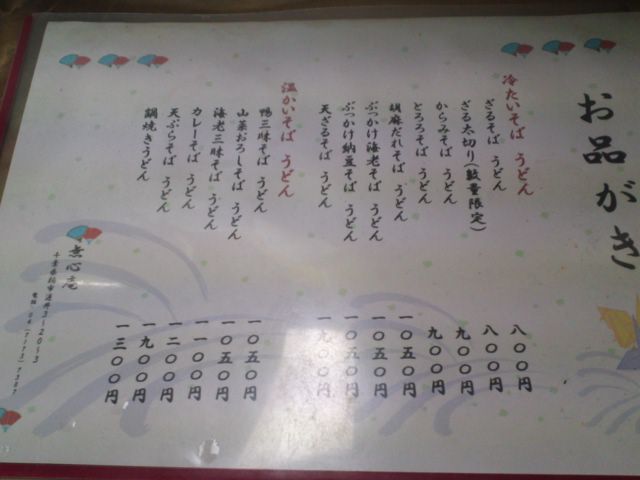 お品がき
冷たいそば うどん
ざるそば うどん 八〇〇円
ざる太切り(数量限定) 八〇〇円
からみそば うどん 九〇〇円
とろろそば うどん 九〇〇円
胡麻だれそば うどん 一〇五〇円
ぶっかけ海老そば うどん 一〇五〇円
ぶっかけ納豆そば うどん 一〇五〇円
天ざるそば うどん 一九〇〇円
温かいそば うどん
鴨三味そば うどん 一〇五〇円
山菜おろしそば うどん 一〇五〇円
海老三味そば うどん 一一〇〇円
カレーそば うどん 一二〇〇円
天ぷらそば うどん 一九〇〇円
鍋焼きうどん 一三〇〇円
無心庵
千葉県柏市逆井3-20-3